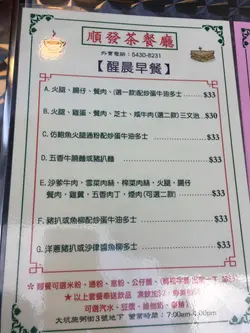 順發茶餐廳
外賣電話：5430-8231
【醒晨早餐】
A. 火腿、腸仔、餐肉、(選一款)配炒蛋牛油多士 $33
B. 火腿、雞蛋、餐肉、芝士、咸牛肉(選二款)三文治 $30
C. 仿鮑魚火腿通粉配炒蛋牛油多士 $33
D. 五香牛脷麵或豬扒麵 $33
E. 沙爹牛肉，雪菜肉絲，榨菜肉絲，火腿，腸仔
餐肉，雞翼，五香肉丁，煙肉(可選二款) $33
F. 豬扒或魚柳配炒蛋牛油多士 $33
G. 洋蔥豬扒或沙律醬魚柳多士 $33
以上套餐奉送飲品
可選汽水、豆漿、維他奶
大坑施弼街3號地下 營業時間：7:00am-4:00pm